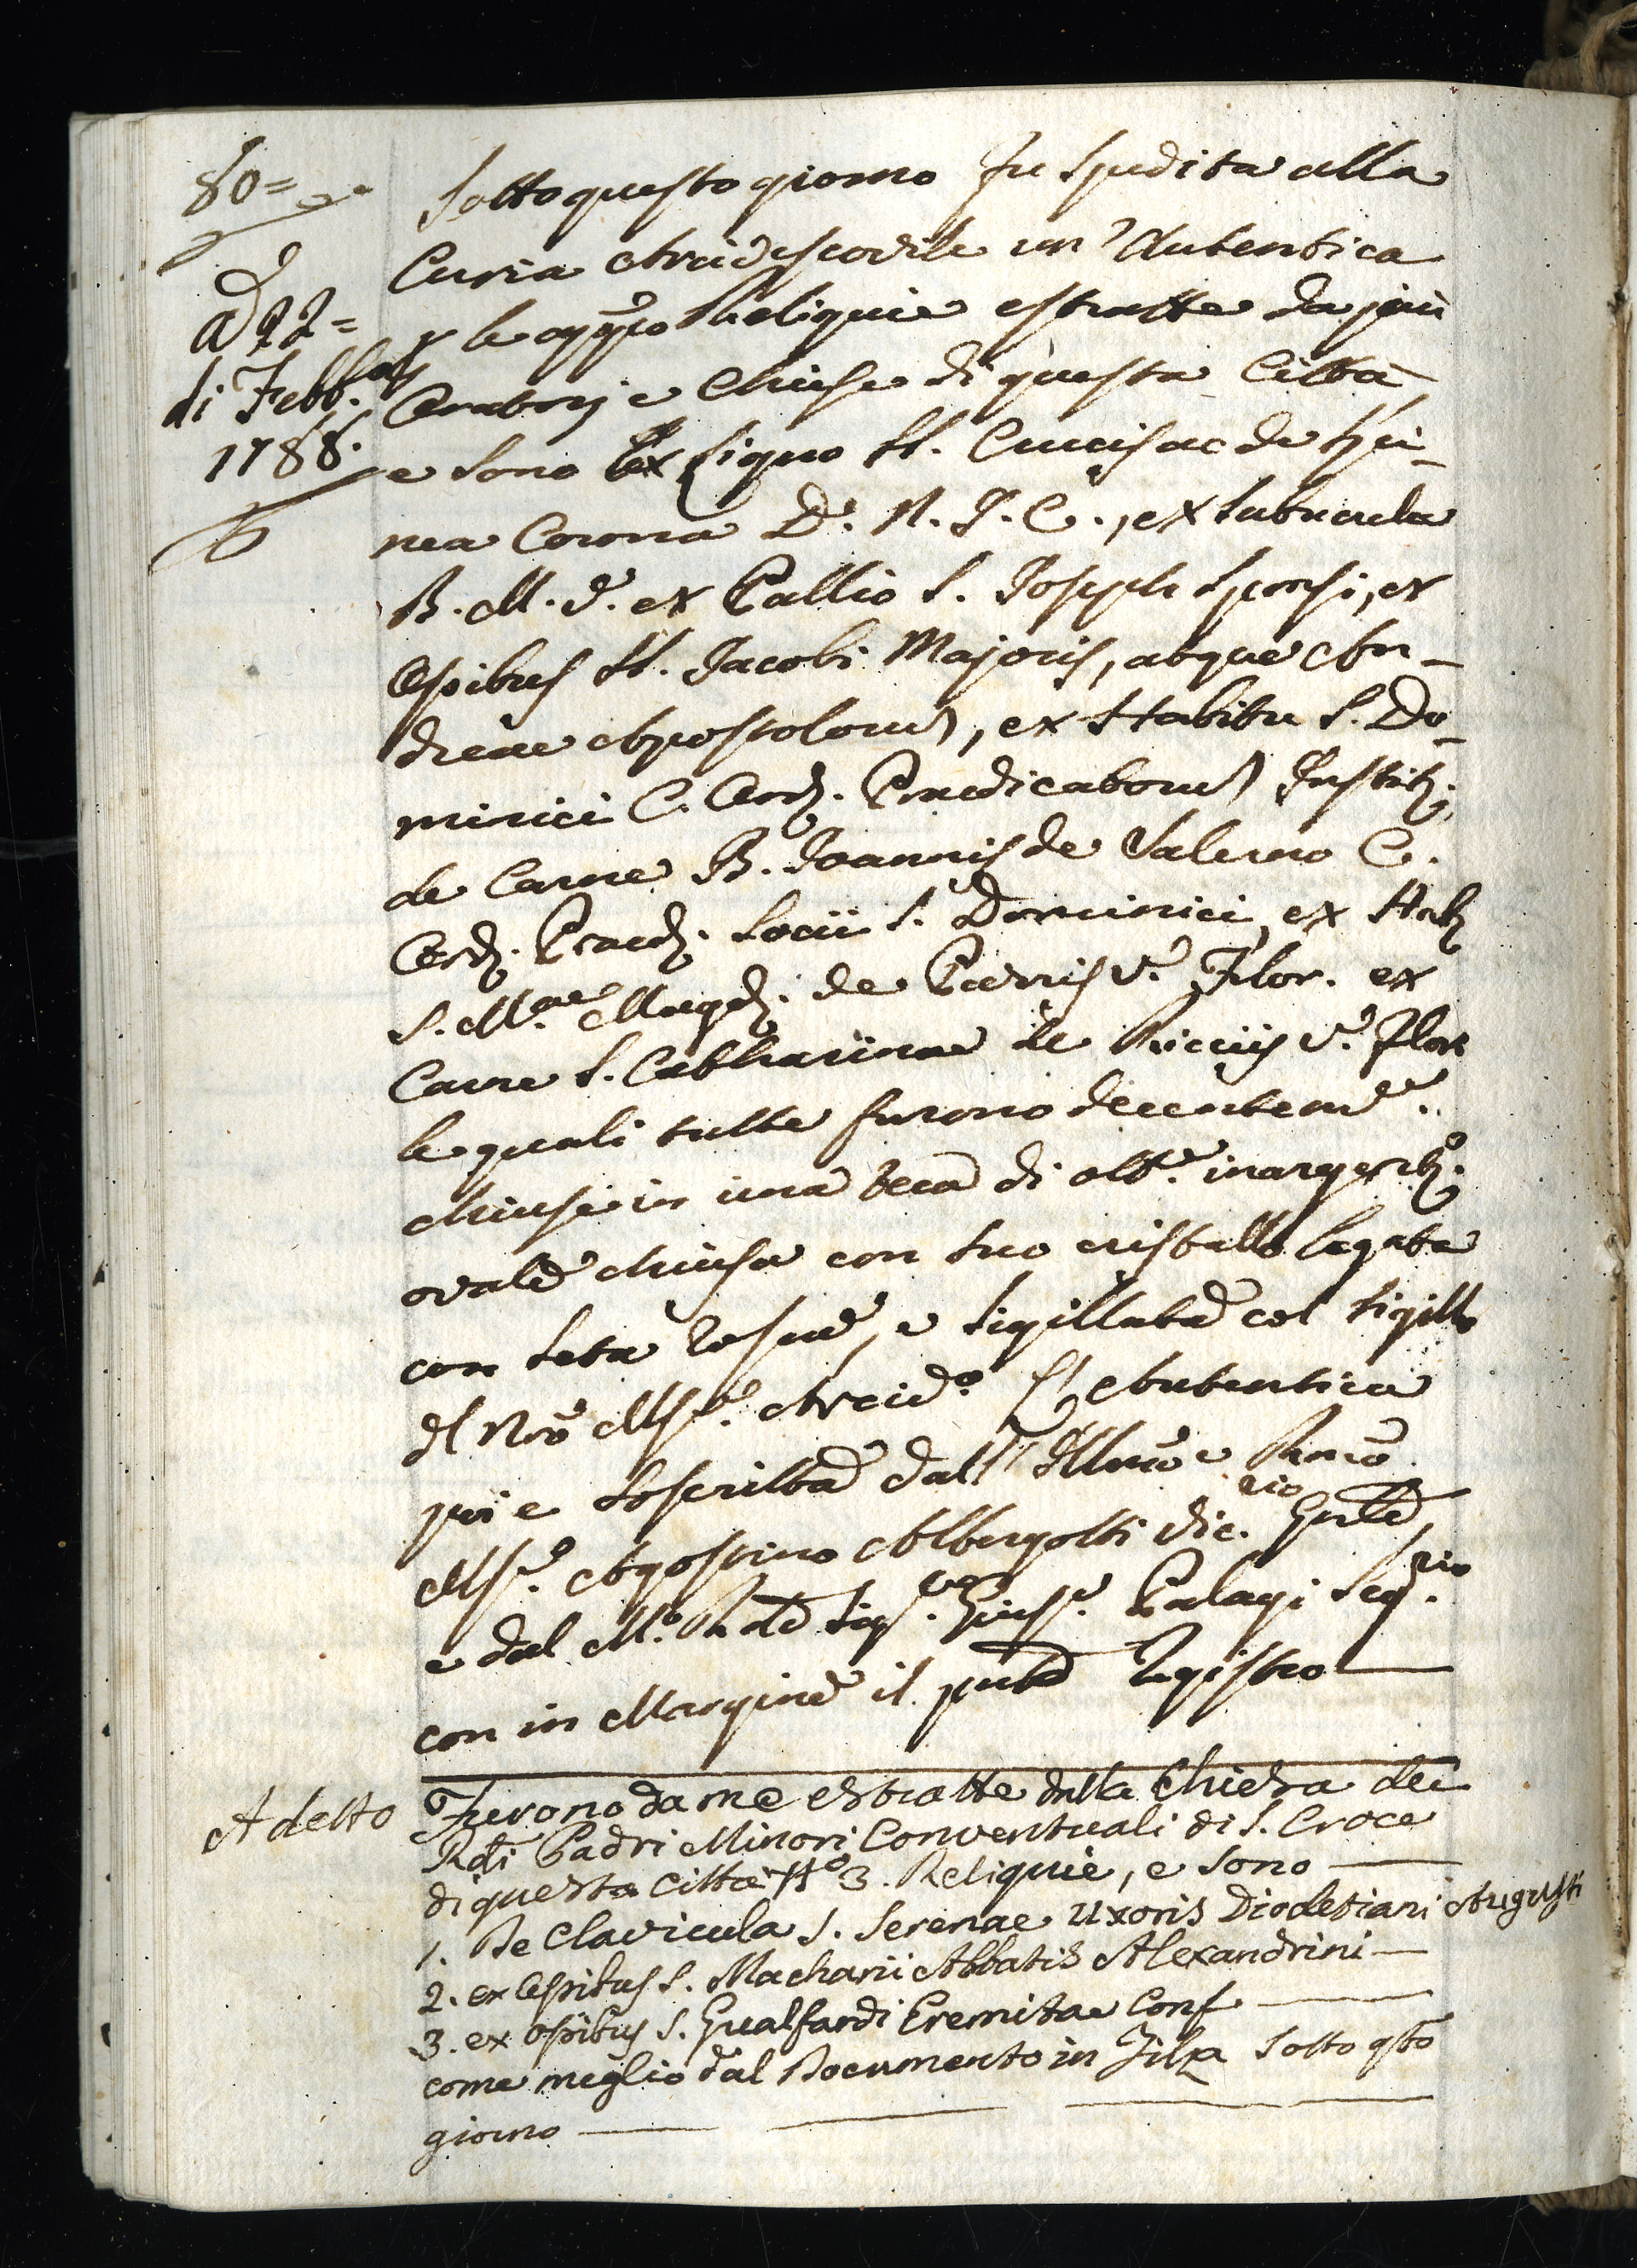 80=
A dì 22=
di Febb.º
1788.
Sotto questo giorno fu spedita alla
Curia Arcivescovile un'Autentica
p le app.º Reliquie estratte da più
Oratorj e Chiese di questa Città,
e sono Ex Ligno SS. Crucis ac de Spi-
nea Corona D. N. J. C., ex Subucula
B. M. V. ex Pallio S. Joseph Sponsi, ex
Ossibus SS. Jacobi Majoris, atque An-
dreae Apostolorum, ex Habitu S. Do-
minici C. Ord. Praedicatorum Instit.
de Carne B. Joannis de Salerno C.
Ord. Praed. Socii S. Dominici, ex Hab
S. M.ae Magd. de Pazzis V. Flor. ex
Carne S. Catharinae de Ricciis V. Flor
le quali tutte furono decentem.e
chiuse in una teca di ott.e inargent.
ovale chiusa con suo cristallo legata
con seta rossa, e sigillata col sigillo
del Nrõ Msr. Arcid.º L'Autentica
poi e soscritta dall' Illmo e Rmo
Msr. Agostino Albergotti Vic.rio Gnle,
e dal M.º Rdo Sigr. Gius.e Palagi Seg.rio
con in Margine il pnte Registro
A detto
Furono da me estratte dalla Chiesa dei
Rdi Padri Minori Conventuali di S. Croce
di questa Città Nº 3. Reliquie, e sono
1. De Clavicula S. Serenae Uxoris Diocletiani Augusti
2. ex Ossibus S. Macharii Abbatis Alexandrini
3. ex Ossibus S. Gualfardi Eremitae Conf
come meglio dal Documento in Filza sotto qsto
giorno